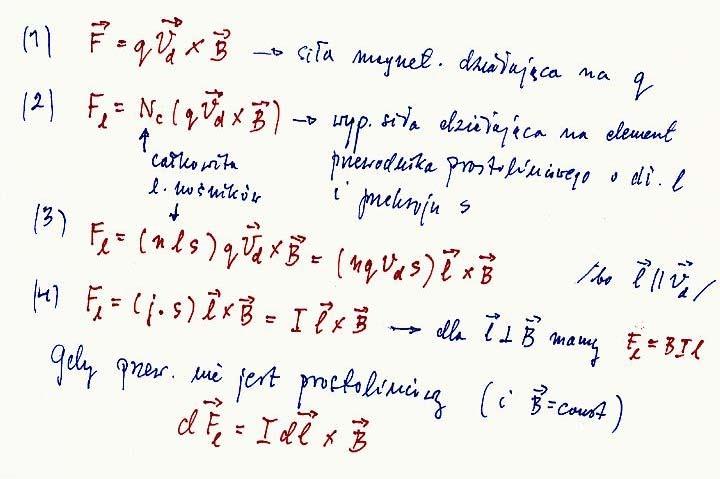 (1) F⃗ = q v⃗_d × B⃗ → siła magnet. działająca na q
(2) F_l = N_c (q v⃗_d × B⃗) → wyp. siła działająca na element
↑ całkowita przewodnika prostoliniowego o dł. l
l. nośników i przekroju s
↓
(3) F_l = (n l s) q v⃗_d × B⃗ = (n q v_d s) l⃗ × B⃗ /bo l⃗ || v⃗_d /
(4) F_l = (j · s) l⃗ × B⃗ = I l⃗ × B⃗ → dla l⃗ ⊥ B⃗ mamy F_l = B I l
Gdy przew. nie jest prostoliniowy (i B⃗ = const)
dF⃗_l = I dl⃗ × B⃗